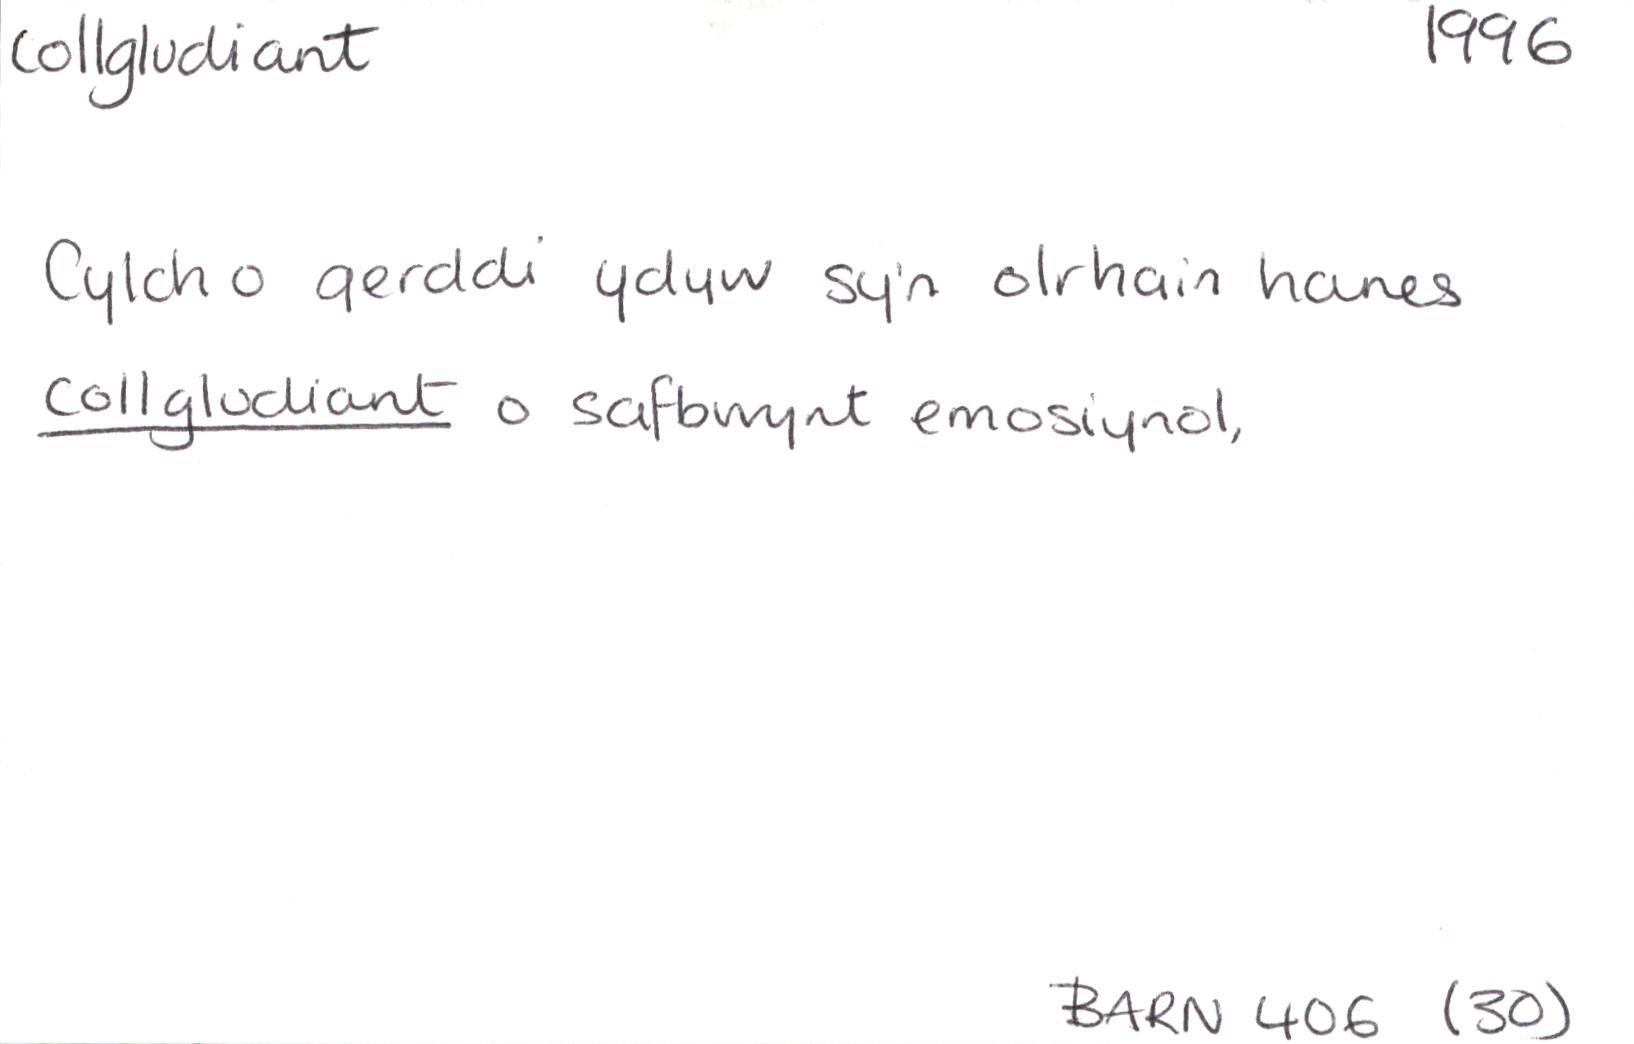 collgludiant 1996
Cylch o gerddi ydyw sy'n olrhain hanes
collgludiant o safbwynt emosiynol,
BARN 406 (30)